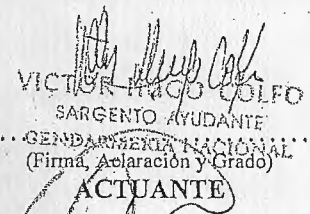 VICTOR HUGO COLFO
SARGENTO AYUDANTE
GENDARMERIA NACIONAL
(Firma, Aclaración y Grado)
ACTUANTE